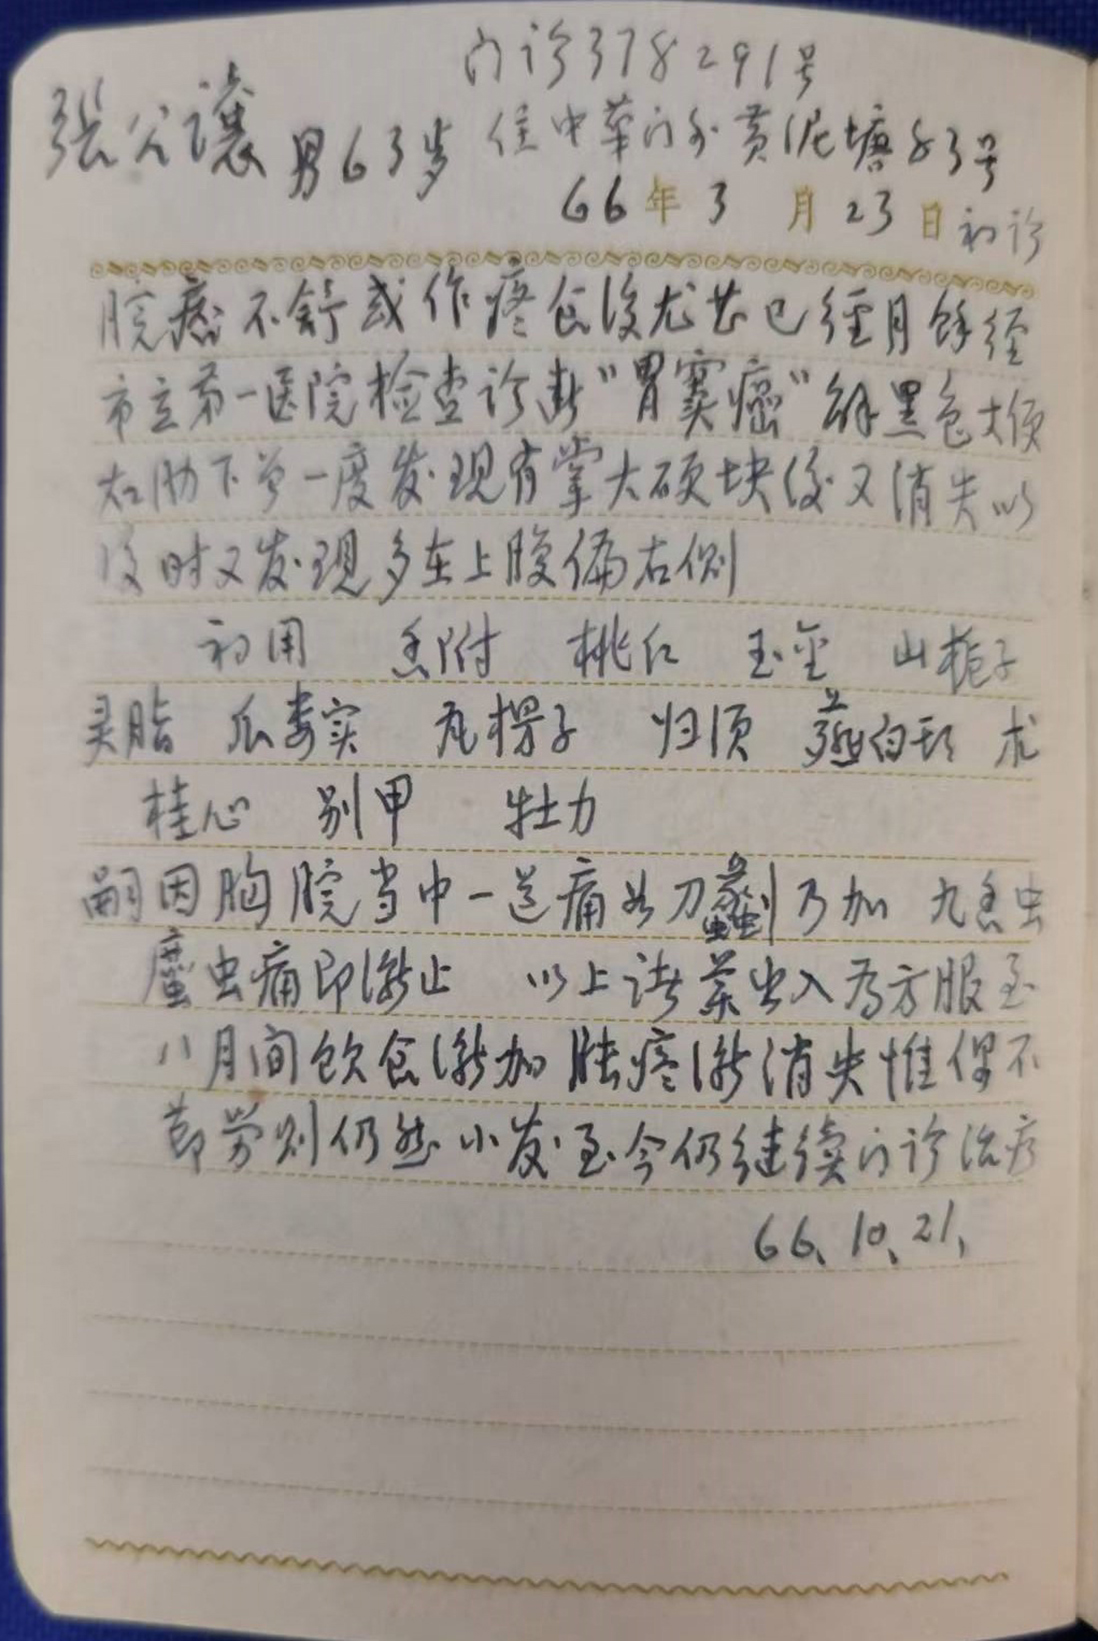 门诊378291号
张公讓 男63岁 住中華门外黄泥塘83号
66年3月23日初诊
脘痞不舒或作疼食後尤甚已经月馀经
市立第一医院检查诊断"胃窦癌"解黑色大便
右肋下曾一度发现有掌大硬块後又消失以
後时又发现多在上腹偏右侧
初用 香附 桃仁 玉金 山栀子
灵脂 瓜娄实 瓦楞子 归须 薤白头 术
桂心 别甲 牡力
嗣因胸脘当中一道痛如刀劙乃加 九香虫
䗪虫痛即渐止 以上诸药出入为方服至
八月间饮食渐加胀疼渐消失惟偶不
节劳则仍然小发至今仍继续门诊治疗
66、10、21、